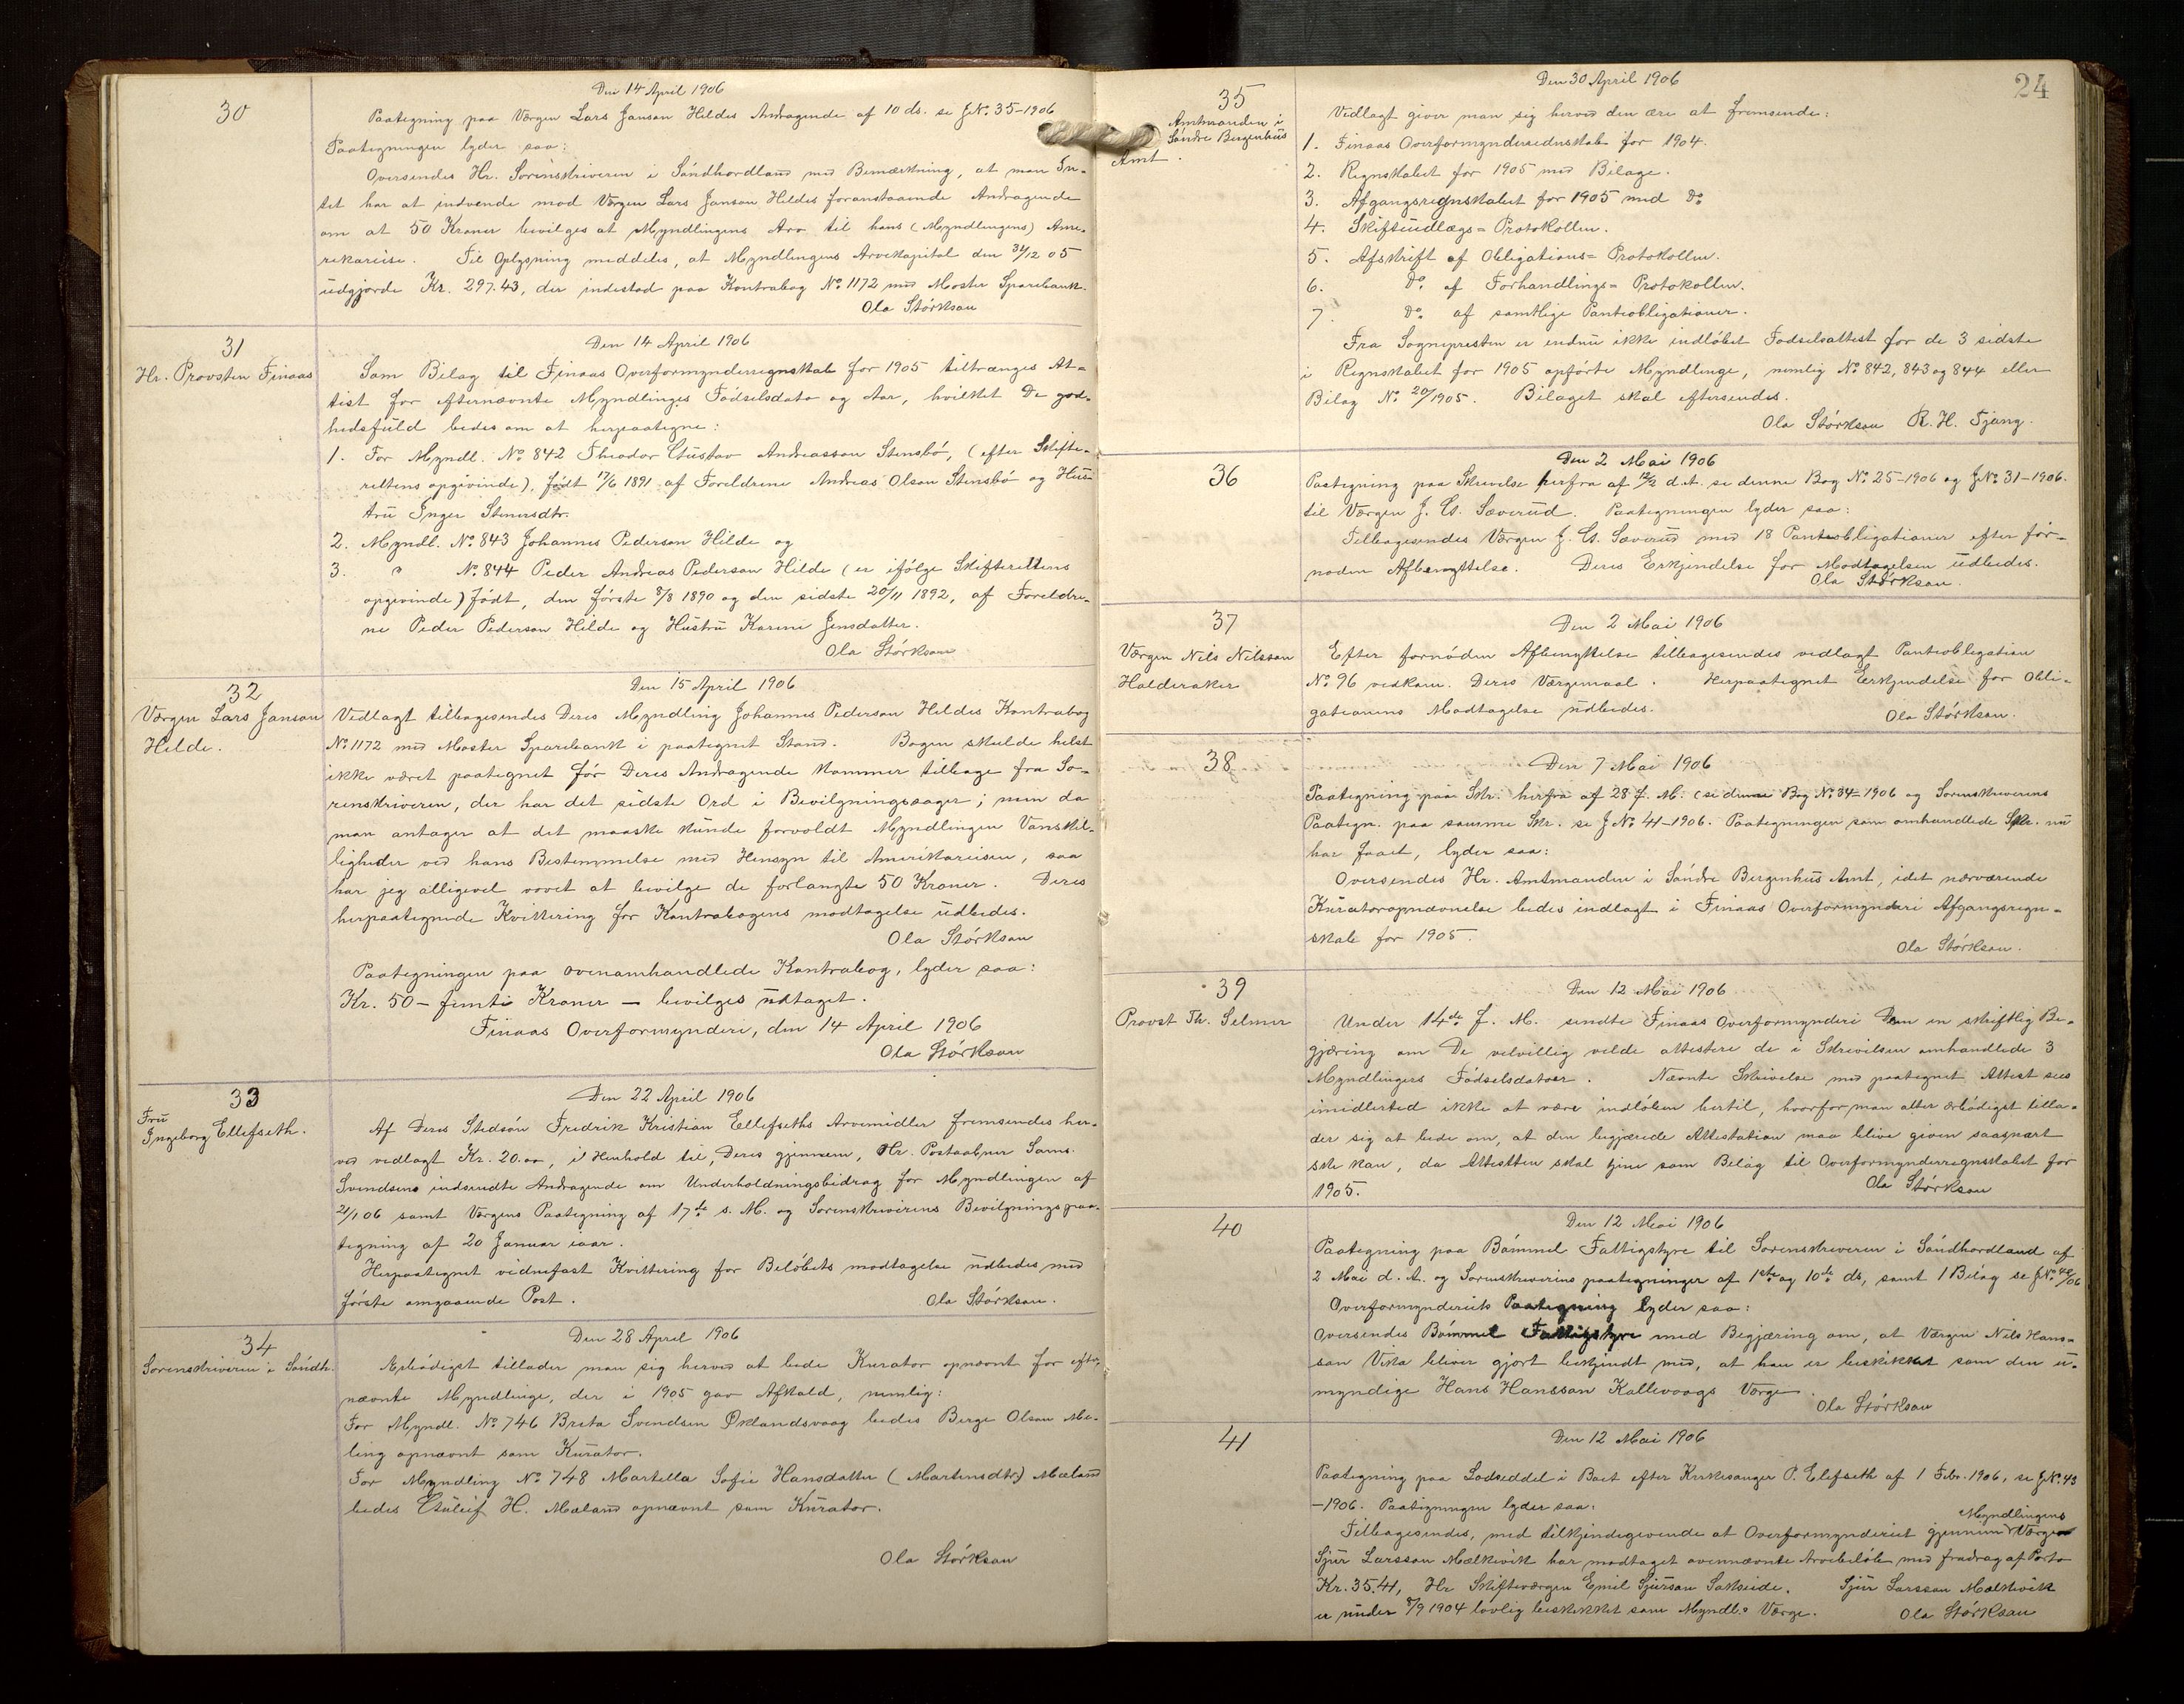 30
Den 14 April 1906
Paategning paa Værgen Lars Janson Hildes Andragende af 10 ds. se J.No. 35-1906
Paategningen lyder saa:
Oversendes Hr. Sorenskriveren i Søndhordland med Bemærkning, at man In-
tet har at indvende mod Værgen Lars Janson Hildes foranstaaende Andragende
om at 50 Kroner bevilges af Myndlingens Arv til hans (Myndlingens) Ame-
rikareise. Til Oplysning meddeles, at Myndlingens Arvekapital den 31/12 05
udgjorde Kr. 297.43, der indestod paa Kontrabog No. 1172 med Moster Sparebank.
Ola Størkson
31
Hr. Provsten Finaas
Den 14 April 1906
Som Bilag til Finaas Overformynderregnskab for 1905 tiltrænges At-
test for efternævnte Myndlinges Fødselsdato og Aar, hvilket De god-
hedsfuld bedes om at herpaategne:
1. For Myndl. No. 842 Theodor Gustav Andreasson Stensbø, (efter Skifte-
rettens opgivende), født 17/6 1891 af Forældrene Andreas Olson Stensbø og Hus-
tru Inger Stenersdtr.
2. Myndl. No. 843 Johannes Pederson Hilde og
3. " No. 844 Peder Andreas Pederson Hilde (er ifølge Skifterettens
opgivende) født, den første 8/8 1890 og den sidste 20/11 1892, af Foreldre-
ne Peder Pederson Hilde og Hustru Karine Jensdatter.
Ola Størkson
32
Værgen Lars Janson
Hilde.
Den 15 April 1906
Vedlagt tilbagesendes Deres Myndling Johannes Pederson Hildes Kontrabog
No. 1172 med Moster Sparebank i paategnet Stand. Bogen skulde helst
ikke været paategnet før Deres Andragende kommer tilbage fra So-
renskriveren, der har det sidste Ord i Bevilgningssager; men da
man antager at det maaske kunde forvoldt Myndlingen Vanskel-
ligheder ved hans Bestemmelse med Hensyn til Amerikareisen, saa
har jeg alligevel vovet at bevilge de forlangte 50 Kroner. Deres
herpaategnede Kvittering for Kontrabogens modtagelse udbedes.
Ola Størkson
Paategningen paa ovenomhandlede Kontrabog, lyder saa:
Kr. 50 – femti Kroner – bevilges udtaget.
Finaas Overformynderi, den 14 April 1906
Ola Størkson
33
Fru
Ingeborg Ellefseth.
Den 22 April 1906
Af Deres Stedsøn Fredrik Kristian Ellefseths Arvemidler fremsendes her-
ved vedlagt Kr. 20.00, i Henhold til, Deres gjennem, Hr. Postaabner Sams.
Svendsens indsendte Andragende om Underholdningsbidrag for Myndlingen af
21/1 06 samt Værgens Paategning af 17de s. M. og Sorenskriverens Bevilgningspaa-
tegning af 20 Januar iaar.
Herpaategnet vidnefast Kvittering for Beløbets modtagelse udbedes med
første omgaaende Post.
Ola Størkson.
34
Sorenskriveren i Søndh.
Den 28 April 1906
Ærbødigst tillader man sig herved at bede Kurator opnævnt for efter-
nævnte Myndlinge, der i 1905 gav Afkald, nemlig:
For Myndl. No. 746 Breta Svendsen Øklandsvaag bedes Berge Olson Me-
ling opnævnt som Kurator.
For Myndling No. 748 Martella Sofie Hansdatter (Martensdtr) Mæland
bedes H. Mæland opnævnt som Kurator.
Ola Størkson
24
35
Amtmanden i
Søndre Bergenhus
Amt.
Den 30 April 1906
Vedlagt giver man sig herved den ære at fremsende:
1. Finaas Overformynderiednskab for 1904.
2. Regnskabet for 1905 med Bilage.
3. Afgangsregnskabet for 1905 med Do.
4. Skifteudlægs=Protokollen.
5. Afskrift af Obligations=Protokollen.
6. Do. af Forhandlings=Protokollen.
7. Do. af samtlige Panteobligationer.
Fra Sognepresten er endnu ikke indløbet Fødselsattest for de 3 sidste
i Regnskabet for 1905 opførte Myndlinge, nemlig No. 842, 843 og 844 eller
Bilag No. 20/1905. Bilaget skal eftersendes.
Ola Størkson R. H. Tjong.
36
Den 2 Mai 1906
Paategning paa Skrivelse herfra af 12/2 d.A. se denne Bog No. 25-1906 og J.No. 31-1906.
til Værgen J. G. Sæverud. Paategningen lyder saa:
Tilbagesendes Værgen J. G. Sæverud med 18 Panteobligationer efter for-
nøden Afbenyttelse. Deres Erkjendelse for Modtagelsen udbedes.
Ola Størkson.
37
Værgen Nils Nilsson
Halderaker
Den 2 Mai 1906
Efter fornøden Afbenyttelse tilbagesendes vedlagt Panteobligation
No. 96 vedkom. Deres Værgemaal. Herpaategnet Erkjendelse for Obli-
gationens Modtagelse udbedes.
Ola Størkson.
38
Den 7 Mai 1906
Paategning paa Skr. herfra af 28 f. M. (se denne Bog No. 34-1906 og Sorenskriverens
Paategn. paa samme Skr. se J.No. 41-1906. Paategningen som omhandlede Skr. nu
har faaet, lyder saa:
Oversendes Hr. Amtmanden i Søndre Bergenhus Amt, idet nærværende
Kuratoropnævnelse bedes indlagt i Finaas Overformynderi Afgangsregn-
skab for 1905.
Ola Størkson.
39
Provst Th. Selmer
Den 12 Mai 1906
Under 14de f. M. sendte Finaas Overformynderi Dem en skriftlig Be-
gjæring om De velvillig vilde attestere de i Skrivelsen omhandlede 3
Myndlingers Fødselsdatoer. Nævnte Skrivelse med paategnet Attest sees
imidlertid ikke at være indløben hertil, hvorfor man atter ærbødigst tilla-
der sig at bede om, at den begjærede Attestation maa blive given saasnart
ske kan, da Attesten skal tjene som Bilag til Overformynderregnskabet for
1905.
Ola Størkson
40
Den 12 Mai 1906
Paategning paa Bømmel Fattigstyre til Sorenskriveren i Søndhordland af
2 Mai d. A. og Sorenskriverens paategninger af 1ste og 10de ds, samt 1 Bilag se J.No. 42/06
Overformynderiets Paategning lyder saa:
Oversendes Bømmel Fattigstyre med Begjæring om, at Værgen Nils Hans-
son Vika bliver gjort bekjendt med, at han er beskikket som den u-
myndige Hans Hansson Kallevaags Værge.
Ola Størkson
41
Den 12 Mai 1906
Paategning paa Lodseddel i Boet efter Kirkesanger P. Elefseth af 1 Febr. 1906, se J.No. 43
-1906. Paategningen lyder saa:
Tilbagesendes, med tilkjendegivende at Overformynderiet gjennem Myndlingens Værge
Sjur Larsson Mælkevik har modtaget ovennævnte Arvebeløb med fradrag af Porto
Kr. 35.41, Hr Skifteværgen Emil Sjurson Sakseide. Sjur Larsson Mælkevik
er under 8/9 1904 lovlig beskikket som Myndl.s Værge.
Ola Størkson